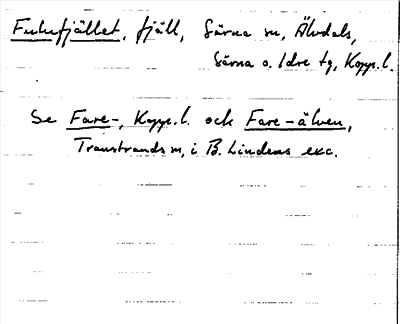 Fulufjället, fjäll, Särna sn, Älvdals,
Särna o. Idre tg, Kopp. l.
Se Fare-, Kopp. l. och Fare-älven,
Transtrands sn, i B. Lindéns exc.